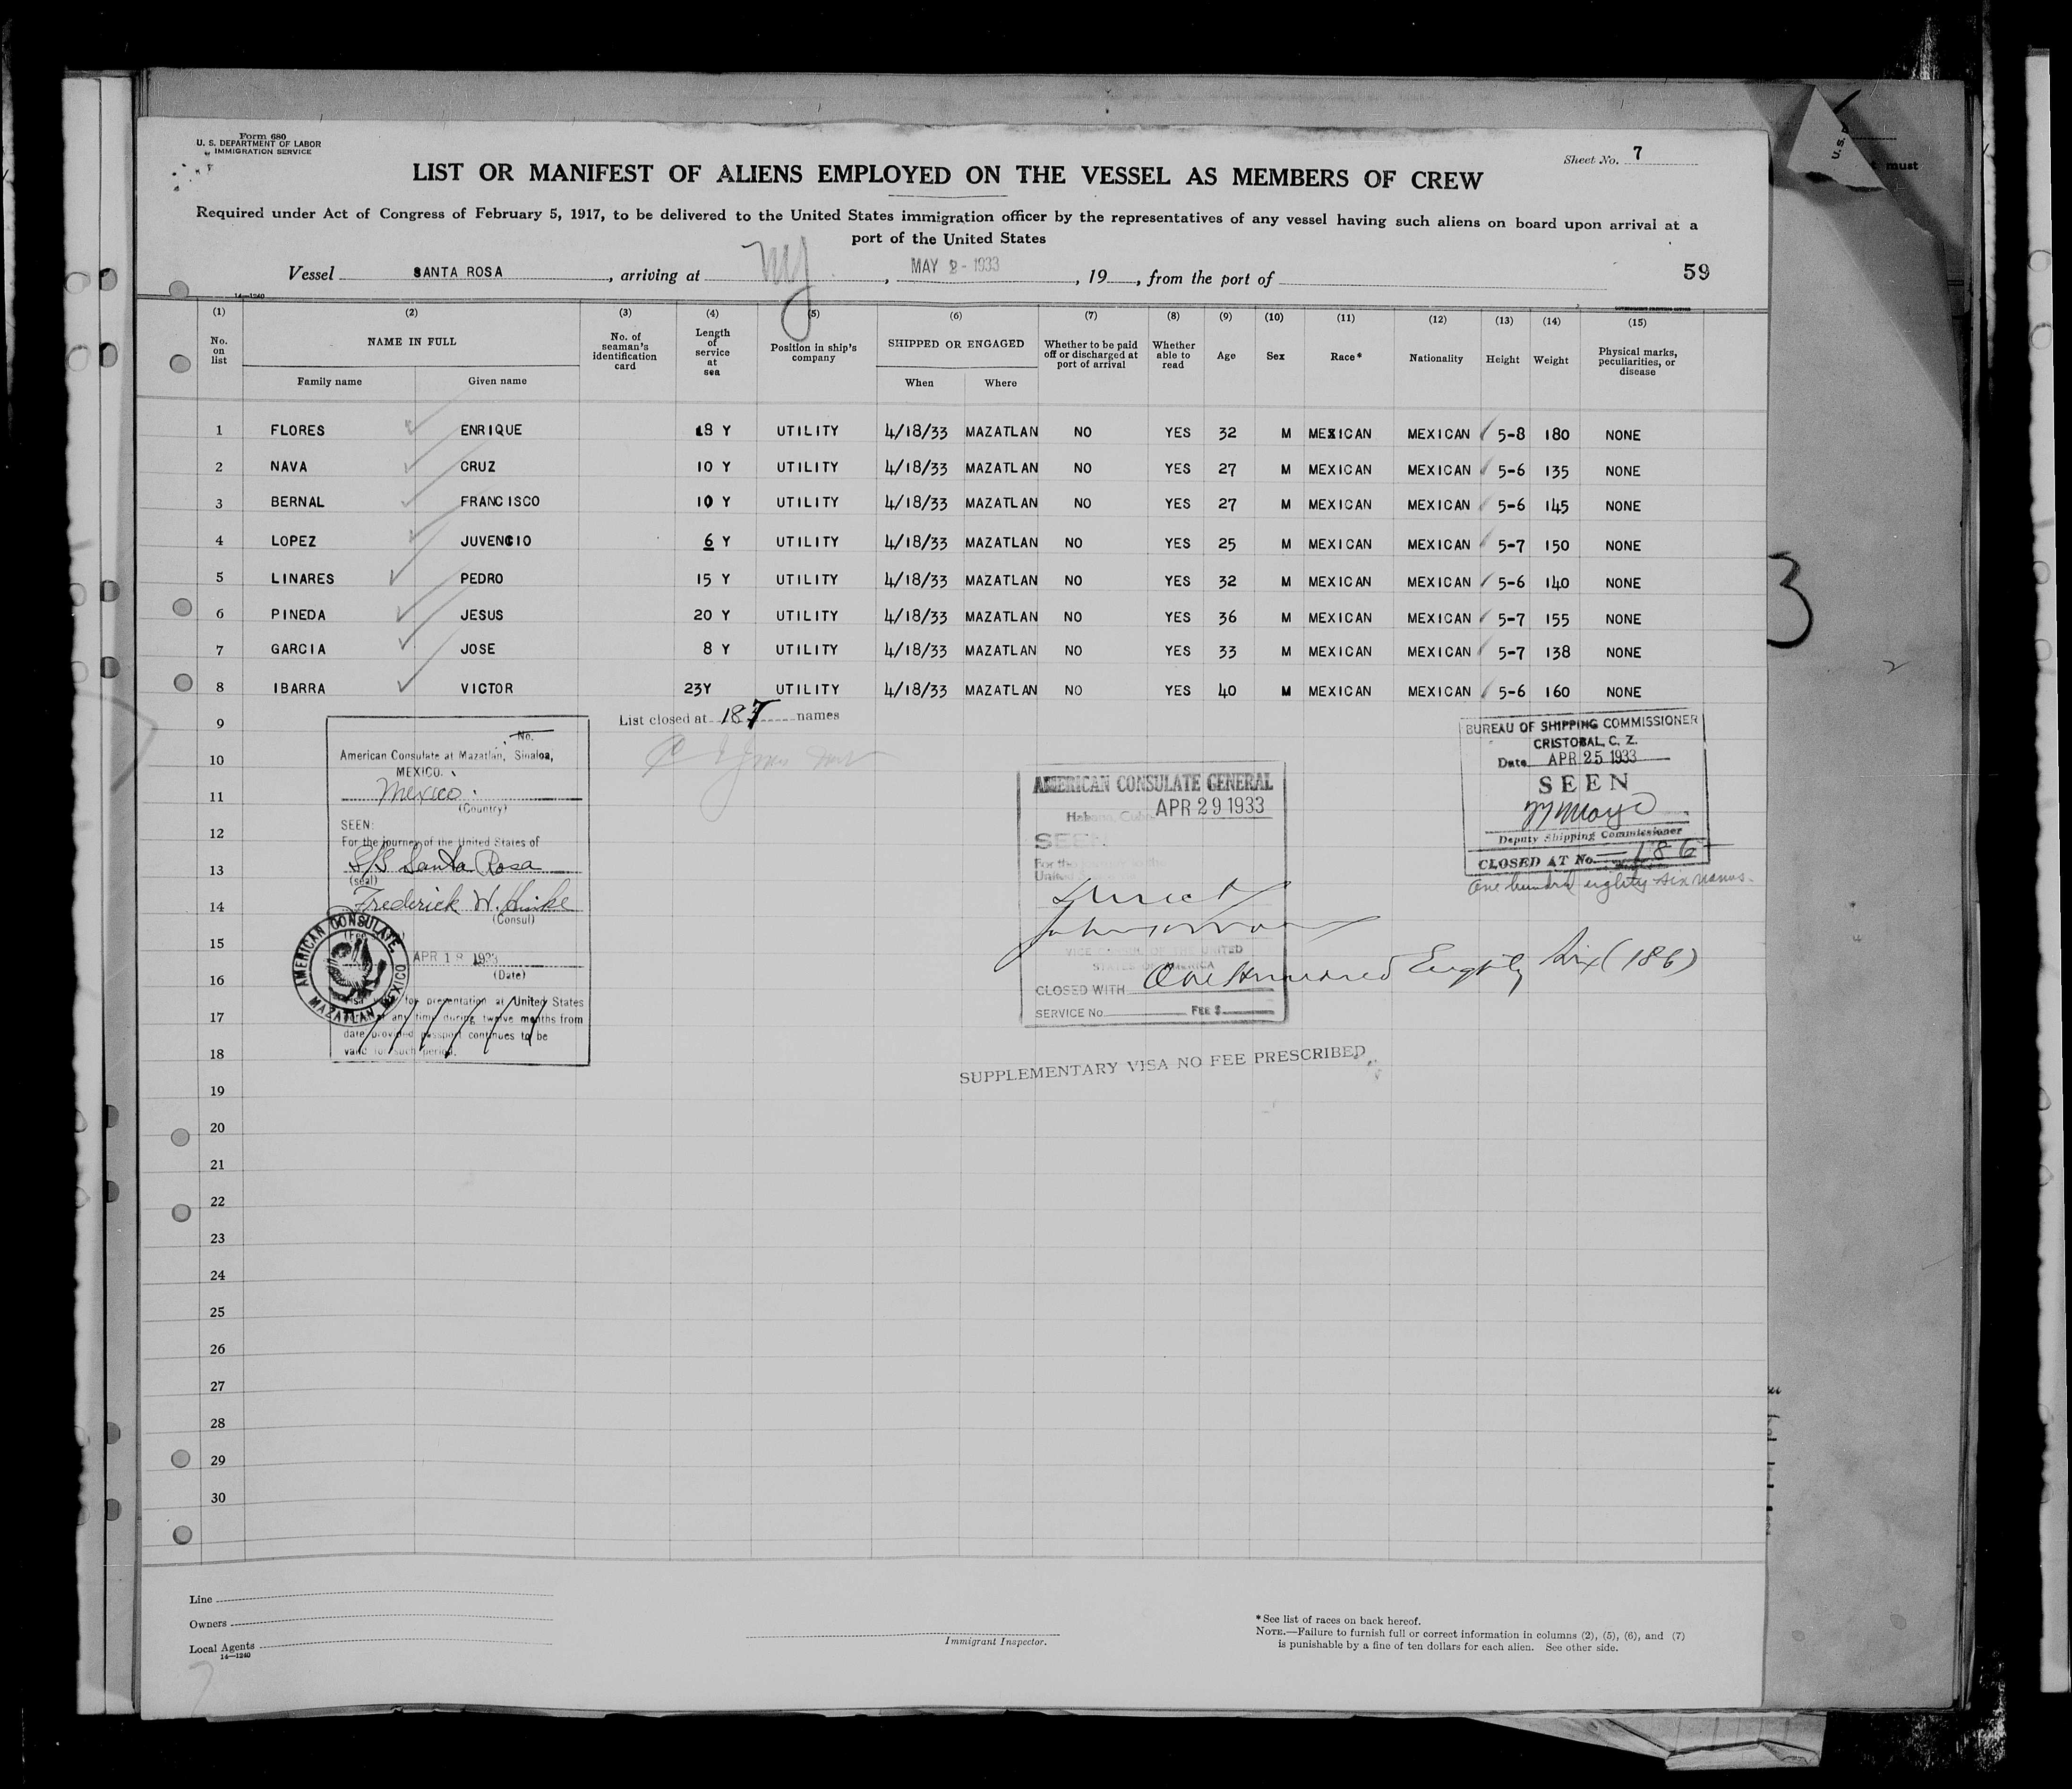 Form 680
U. S. DEPARTMENT OF LABOR
IMMIGRATION SERVICE
Sheet No. 7
LIST OR MANIFEST OF ALIENS EMPLOYED ON THE VESSEL AS MEMBERS OF CREW
Required under Act of Congress of February 5, 1917, to be delivered to the United States immigration officer by the representatives of any vessel having such aliens on board upon arrival at a
port of the United States
Vessel SANTA ROSA, arriving at NY, MAY 2 - 1933, 19, from the port of
59
14—1240
(1) (2) (3) (4) (5) (6) (7) (8) (9) (10) (11) (12) (13) (14) (15)
No. on list NAME IN FULL Family name Given name No. of seaman's identification card Length of service at sea Position in ship's company SHIPPED OR ENGAGED When Where Whether to be paid off or discharged at port of arrival Whether able to read Age Sex Race* Nationality Height Weight Physical marks, peculiarities, or disease
1 FLORES ENRIQUE 18 Y UTILITY 4/18/33 MAZATLAN NO YES 32 M MEXICAN MEXICAN 5-8 180 NONE
2 NAVA CRUZ 10 Y UTILITY 4/18/33 MAZATLAN NO YES 27 M MEXICAN MEXICAN 5-6 135 NONE
3 BERNAL FRANCISCO 10 Y UTILITY 4/18/33 MAZATLAN NO YES 27 M MEXICAN MEXICAN 5-6 145 NONE
4 LOPEZ JUVENCIO 6 Y UTILITY 4/18/33 MAZATLAN NO YES 25 M MEXICAN MEXICAN 5-7 150 NONE
5 LINARES PEDRO 15 Y UTILITY 4/18/33 MAZATLAN NO YES 32 M MEXICAN MEXICAN 5-6 140 NONE
6 PINEDA JESUS 20 Y UTILITY 4/18/33 MAZATLAN NO YES 36 M MEXICAN MEXICAN 5-7 155 NONE
7 GARCIA JOSE 8 Y UTILITY 4/18/33 MAZATLAN NO YES 33 M MEXICAN MEXICAN 5-7 138 NONE
8 IBARRA VICTOR 23Y UTILITY 4/18/33 MAZATLAN NO YES 40 M MEXICAN MEXICAN 5-6 160 NONE
List closed at 187 names
9
10
11
12
13
14
15
16
17
18
19
20
21
22
23
24
25
26
27
28
29
30
No.
American Consulate at Mazatlan, Sinaloa,
MEXICO.
Mexico
(Country)
SEEN:
For the journey of the United States of
S/S Santa Rosa
(seal)
Frederick W. Hinke
(Consul)
APR 18 1933
(Date)
for presentation at United States
at any time during twelve months from
date provided passport continues to be
valid for such period.
AMERICAN CONSULATE
MAZATLAN MEXICO
AMERICAN CONSULATE GENERAL
APR 29 1933
Habana, Cuba
SEEN
For the
United
VICE CONSUL OF THE UNITED
STATES OF AMERICA
CLOSED WITH One Hundred Eighty Six (186)
SERVICE No. FEE $
SUPPLEMENTARY VISA NO FEE PRESCRIBED
BUREAU OF SHIPPING COMMISSIONER
CRISTOBAL, C. Z.
Date APR 25 1933
SEEN
Deputy Shipping Commissioner
CLOSED AT No. 186
One hundred eighty six names.
Line
Owners
Local Agents
14—1240
Immigrant Inspector.
*See list of races on back hereof.
NOTE.—Failure to furnish full or correct information in columns (2), (5), (6), and (7)
is punishable by a fine of ten dollars for each alien. See other side.
must
U. S.
3